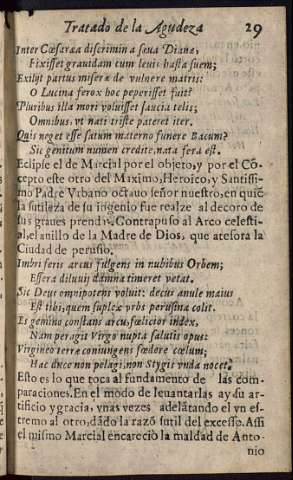 Tratado de la Agudeza 29
Inter Cæsarea discrimina sæua Dianæ,
Fixisset grauidam cum leuis hasta suem;
Exilijt partus miseræ de vulnere matris:
O Lucina ferox hoc peperisset fuit?
Pluribus illa mori voluisset saucia telis;
Omnibus, vt nati triste pateret iter.
Quis neget esse satum materno funere Bacum?
Sic genitum numen credite, nata fera est.
Eclipse el de Marcial por el objeto, y por el Cō-
cepto este otro del Maximo, Heroico, y Santissi-
mo Padre Vrbano octauo, señor nuestro, en quiē
la sutileza de su ingenio fue realze al decoro de
sus graues prendas. Contrapuso al Arco celesti-
al, el anillo de la Madre de Dios, que atesora la
Ciudad de perusio.
Imbriferis arcus fulgens in nubibus Orbem;
Essera diluuij damna timeret vetat.
Sic Deus omnipotens voluit: decus anule maius
Est tibi, quem suplex vrbs perusina colit.
Es gemino constans arcu, fœlicior index,
Nam peragit Virgo nupta salutis opus:
Virgineo terræ coniungens fœdere cœlum;
Hac duce non pelagi, non Stygis vnda nocet.
Esto es lo que toca al fundamento de las com-
paraciones. En el modo de leuantarlas ay su ar-
tificio y gracia, vnas vezes adelātando el vn es-
tremo al otro, dādo la razō sutil del excesso. Assi
el mismo Marcial encareciò la maldad de Anto-
nio